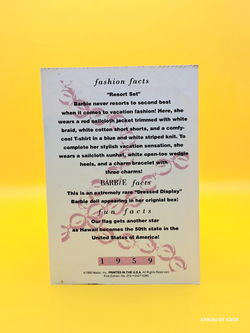 fashion facts
"Resort Set"
Barbie never resorts to second best
when it comes to vacation fashion! Here, she
wears a red sailcloth jacket trimmed with white
braid, white cotton short shorts, and a comfy-
cool T-shirt in a blue and white striped knit. To
complete her stylish vacation sensation, she
wears a sailcloth sunhat, white open-toe wedgie
heels, and a charm bracelet with
three charms!
BARBIE facts
This is an extremely rare "Dressed Display"
Barbie doll appearing in her original box!
fun facts
Our flag gets another star
as Hawaii becomes the 50th state in the
United States of America!
1959
PRINTED IN THE U.S.A. All Rights Reserved.